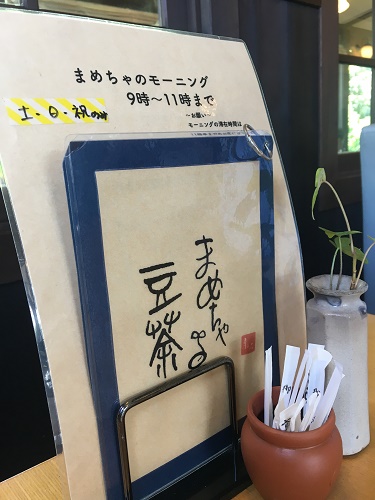 まめちゃのモーニング
9時～11時まで
土・日・祝のみ
～お願い～
モーニングの滞在時間は
まめちゃ
豆茶